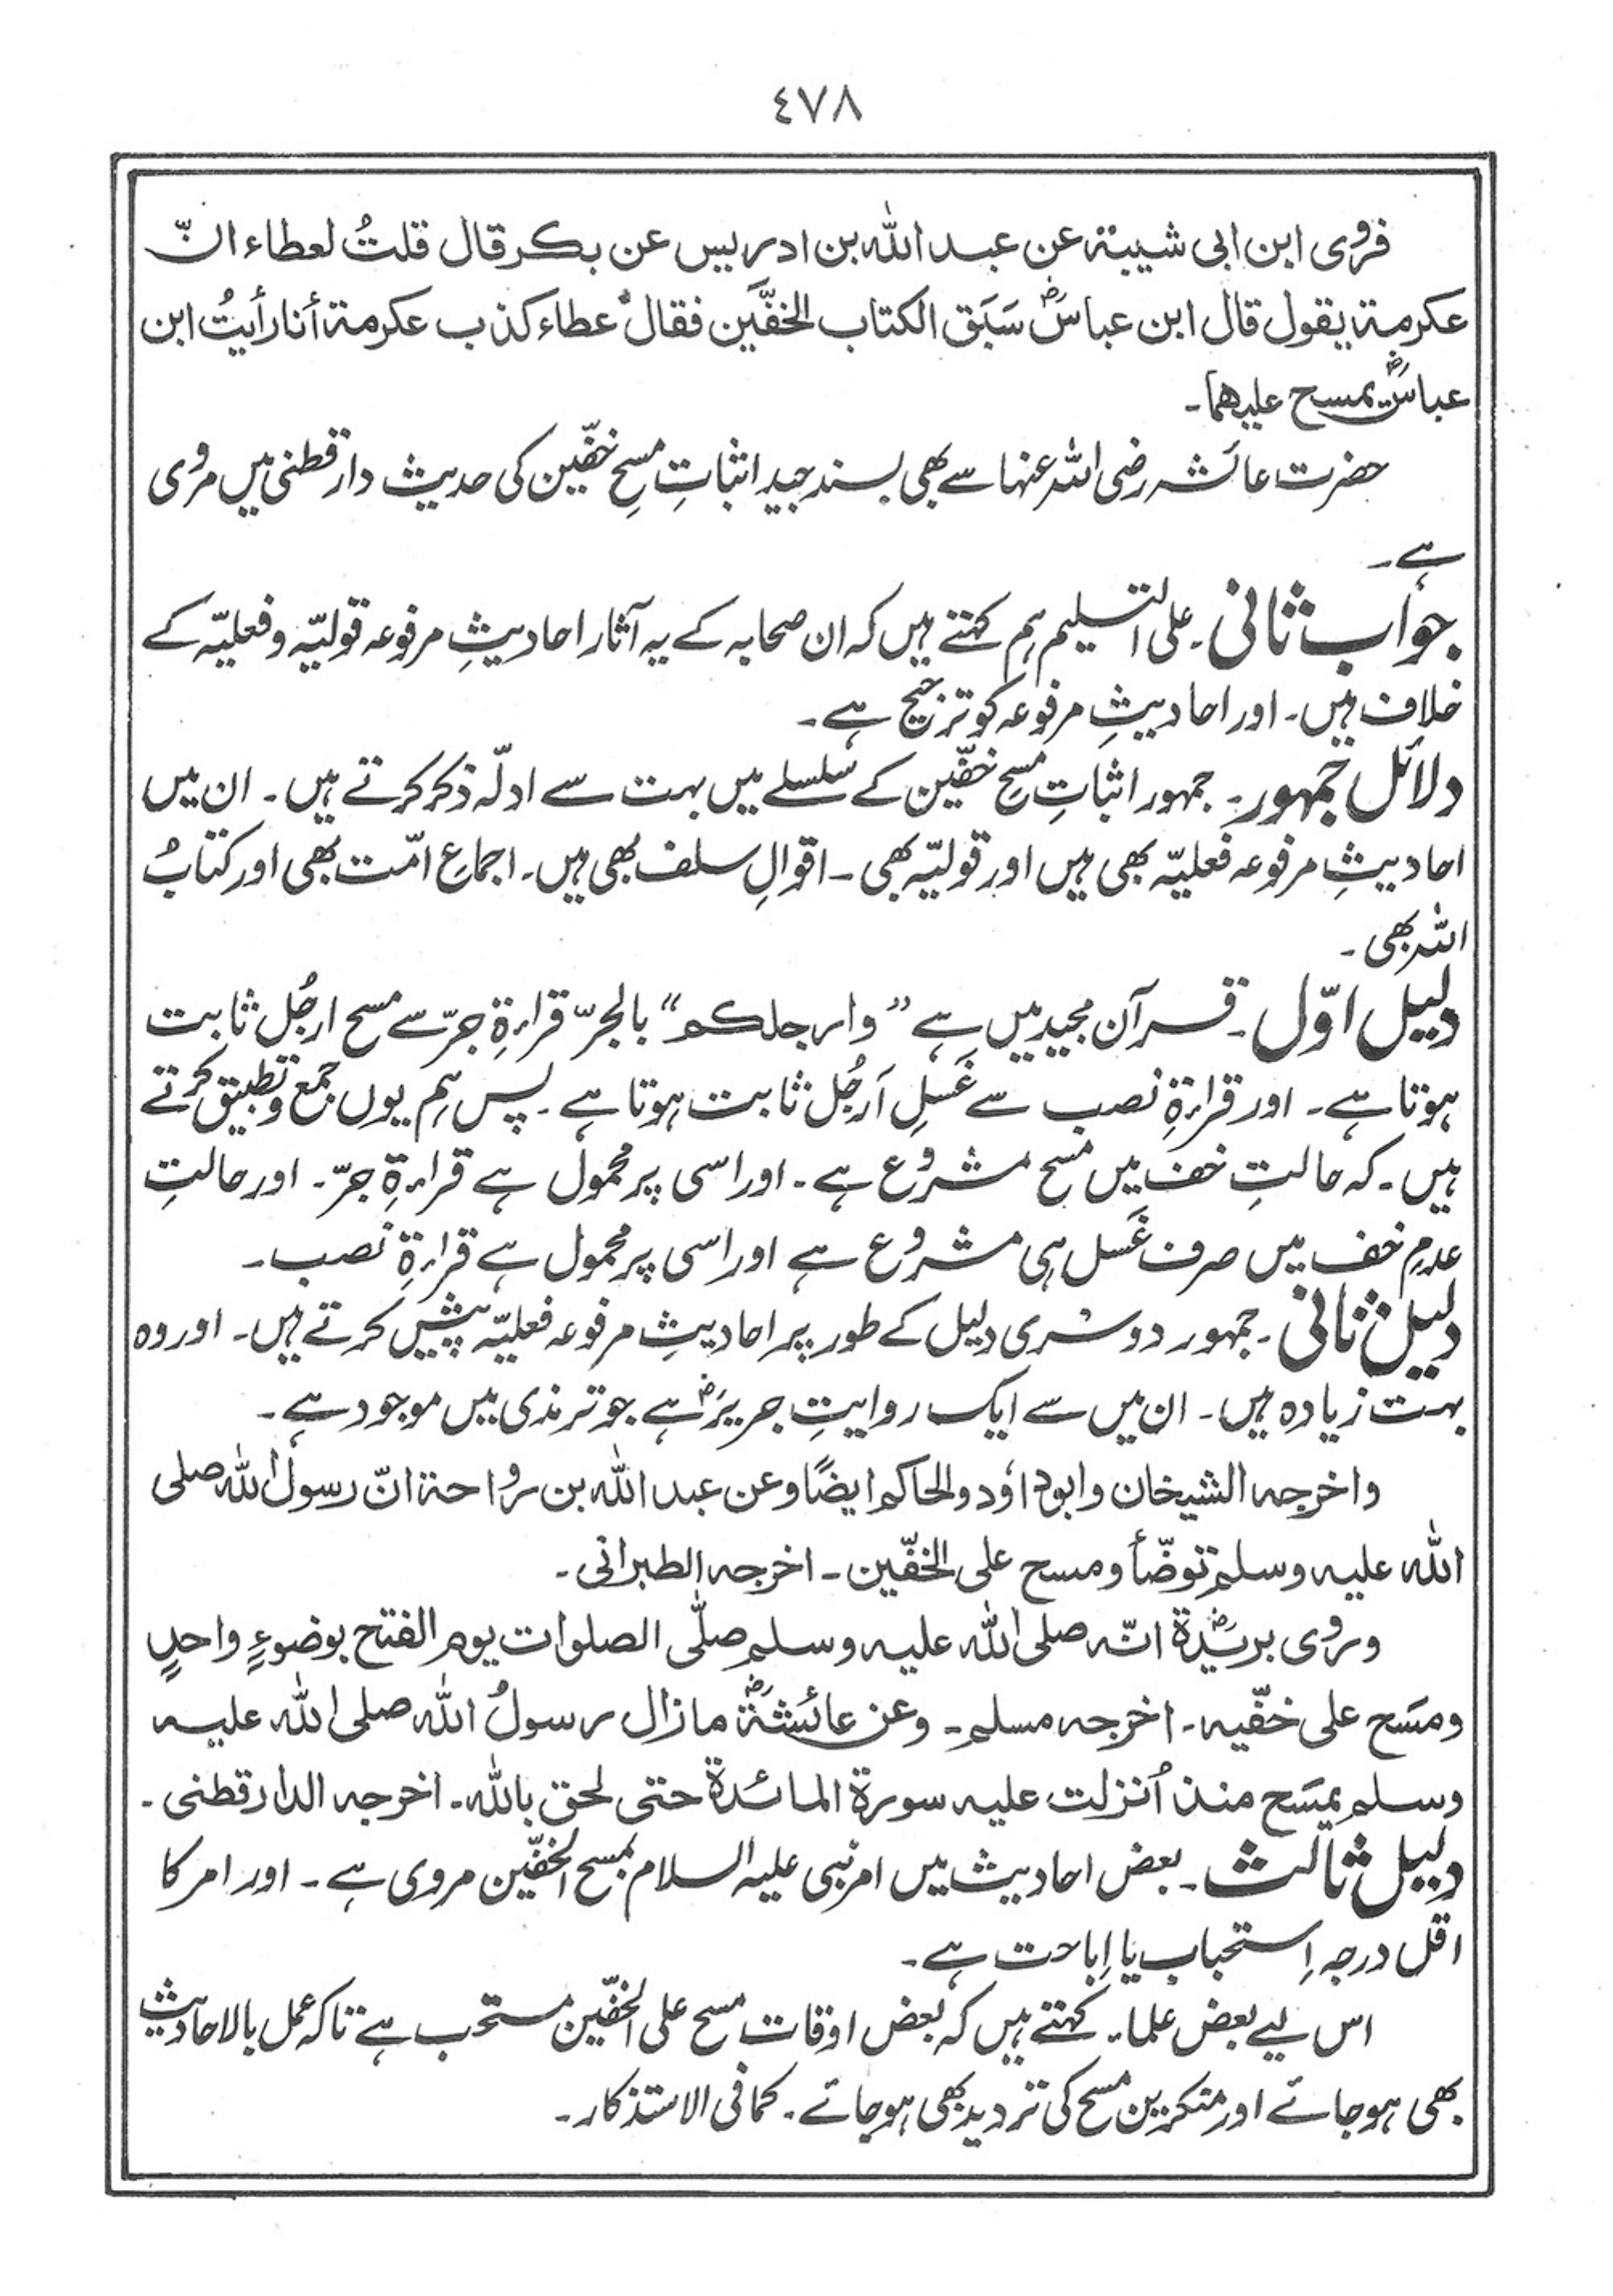 ٤٧٨
فروی ابن ابی شیبة عن عبد اللّٰہ بن ادریس عن بکر قال قلتُ لعطاء انّ
عکرمة یقول قال ابن عباسؓ سَبَق الکتاب الخفَّین فقال عطاء کذب عکرمة أنا رأیتُ ابن
عباسؓ یمسح علیهما۔
حضرت عائشہ رضی اللہ عنہا سے بھی بسند جید اثباتِ مسحِ خفّین کی حدیث دارقطنی میں مروی
ہے۔
جواب ثانی۔ علی التسلیم ہم کہتے ہیں کہ ان صحابہ کے یہ آثار احادیثِ مرفوعہ قولیّہ و فعلیّہ کے
خلاف ہیں۔ اور احادیثِ مرفوعہ کو ترجیح ہے۔
دلائل جمہور۔ جمہور اثباتِ مسحِ خفّین کے سلسلے میں بہت سے ادلّہ ذکر کرتے ہیں۔ ان میں
احادیثِ مرفوعہ فعلیّہ بھی ہیں اور قولیّہ بھی۔ اقوالِ سلف بھی ہیں۔ اجماعِ امّت بھی اور کتابُ
اللہ بھی۔
دلیل اوّل۔ قرآن مجید میں ہے ”وارجلکم“ بالجرّ قراءۃِ جرّ سے مسح ارجُل ثابت
ہوتا ہے۔ اور قراءۃِ نصب سے غَسلِ اَرجُل ثابت ہوتا ہے۔ پس ہم یوں جمع و تطبیق کرتے
ہیں۔ کہ حالتِ خف میں مسح مشروع ہے۔ اور اسی پر محمول ہے قراءۃِ جرّ۔ اور حالتِ
عدمِ خف میں صرف غَسل ہی مشروع ہے اور اسی پر محمول ہے قراءۃِ نصب۔
دلیل ثانی۔ جمہور دوسری دلیل کے طور پر احادیثِ مرفوعہ فعلیّہ پیش کرتے ہیں۔ اور وہ
بہت زیادہ ہیں۔ ان میں سے ایک روایتِ جریرؓ ہے جو ترمذی میں موجود ہے۔
واخرجہ الشیخان وابوداؤد والحاکم ایضًا وعن عبد اللّٰہ بن رواحة انّ رسول اللّٰہ صلی
اللّٰہ علیہ وسلم توضّأ ومسح علی الخفّین۔ اخرجہ الطبرانی۔
وروی بریدةؓ انّہ صلی اللّٰہ علیہ وسلم صلّی الصلوات یوم الفتح بوضوءٍ واحدٍ
ومسَح علی خفّیہ۔ اخرجہ مسلم۔ وعن عائشةؓ مازال رسولُ اللّٰہ صلی اللّٰہ علیہ
وسلم یمسَح منذ اُنزلت علیہ سورة المائدة حتی لحق باللّٰہ۔ اخرجہ الدارقطنی۔
دلیل ثالث۔ بعض احادیث میں امر نبی علیہ السلام بمسح الخفّین مروی ہے۔ اور امر کا
اقل درجہ اِستحباب یا اِباحت ہے۔
اس لیے بعض علماء کہتے ہیں کہ بعض اوقات مسح علی الخفّین مستحب ہے تاکہ عمل بالاحادیث
بھی ہو جائے اور منکرین مسح کی تردید بھی ہو جائے۔ کما فی الاستذکار۔